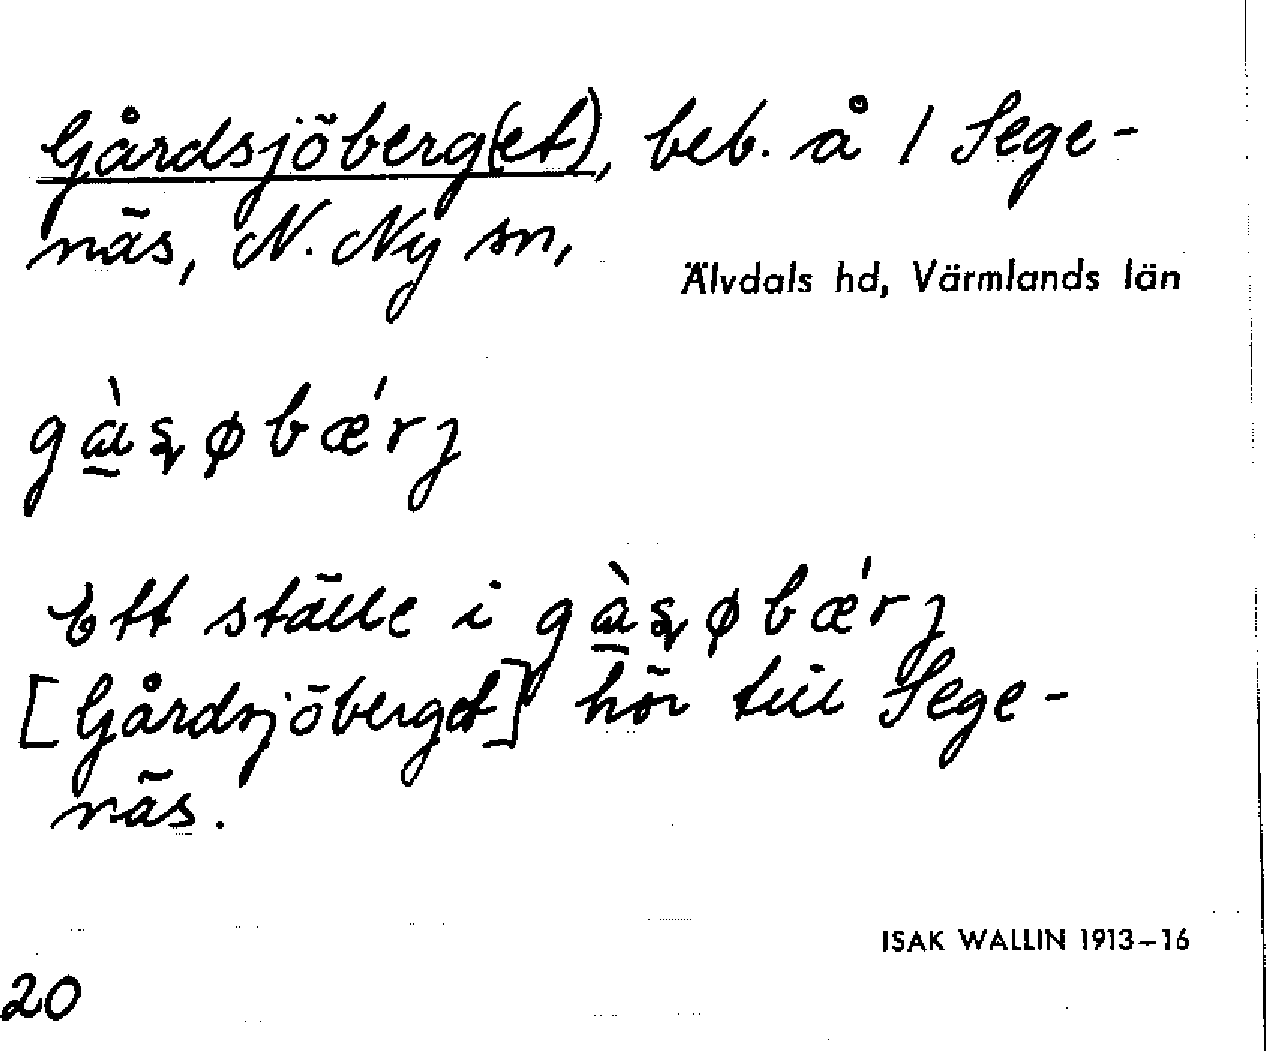 Gårdsjöberg(et), beb. å 1 Sege-
näs, N. Ny sn,
Älvdals hd, Värmlands län
Ett ställe i
[Gårdsjöberget] hör till Sege-
näs.
ISAK WALLIN 1913–16
20